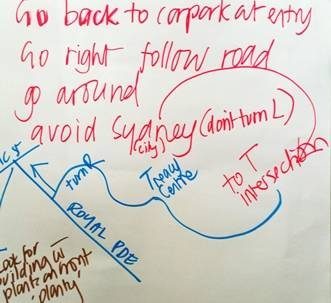 Go back to carpark at entry
Go right follow road
go around
avoid Sydney (don't turn L)
(city)
to T
intersection
turn R
Treacy
Centre
ROYAL PDE
Look for
building w
plants on front
'planty'